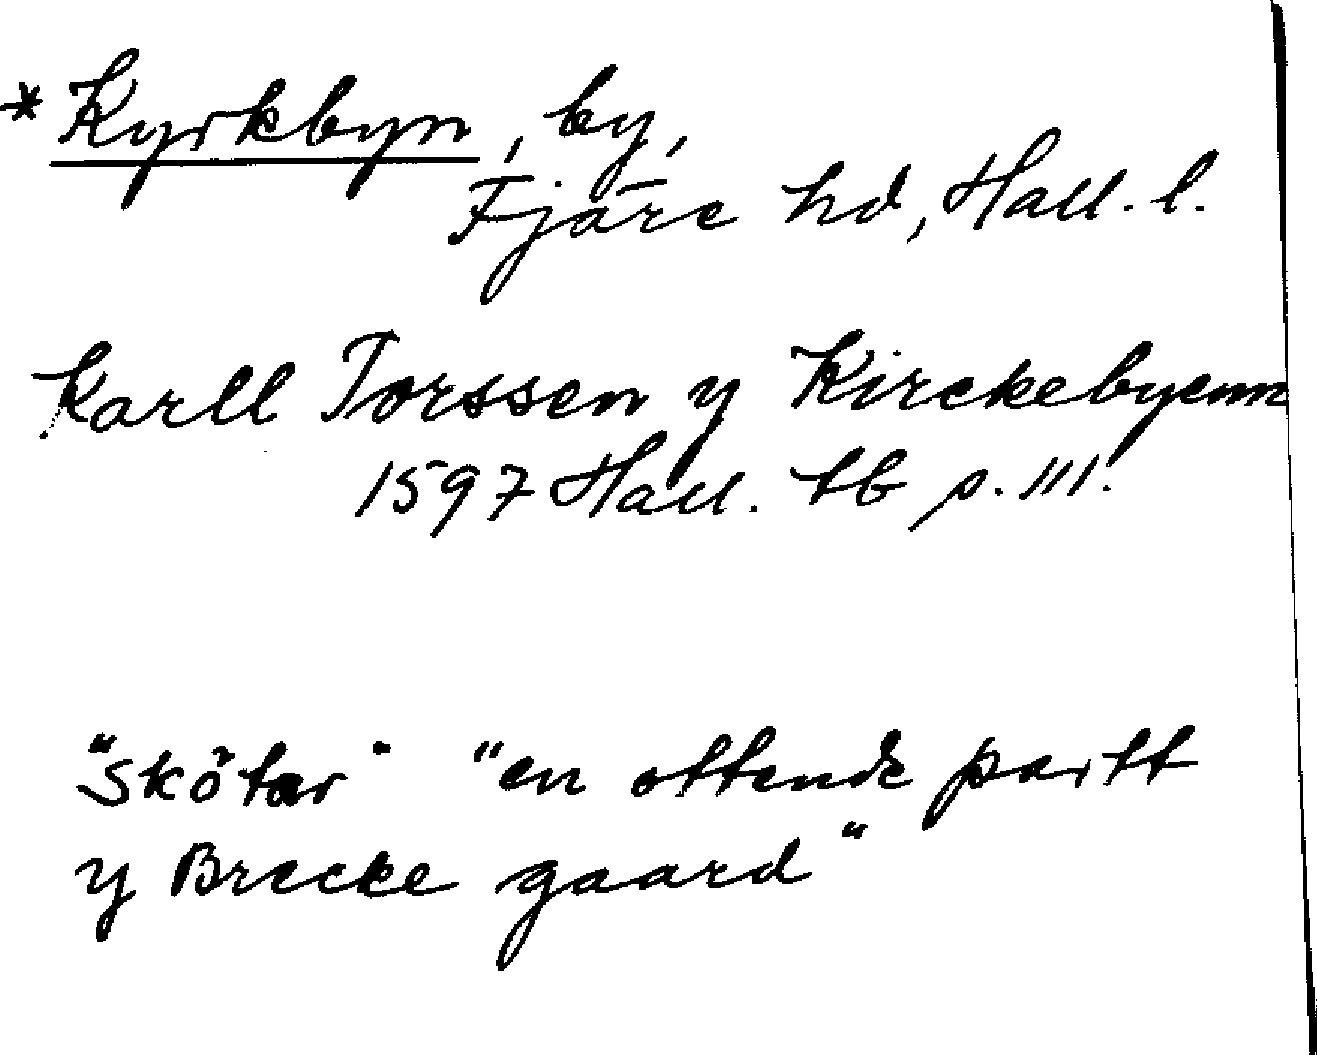 * Kyrkbyn, by,
Fjäre hd, Hall. l.
Karll Torssen y Kirckebyenn
1597 Hall. tb s. 111.
"Skötar" "en ottende partt
y Brecke gaard"